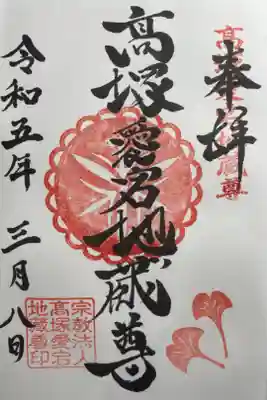 奉拝
高塚愛宕地蔵尊
令和五年 三月八日
宗教法人
高塚愛宕
地蔵尊印